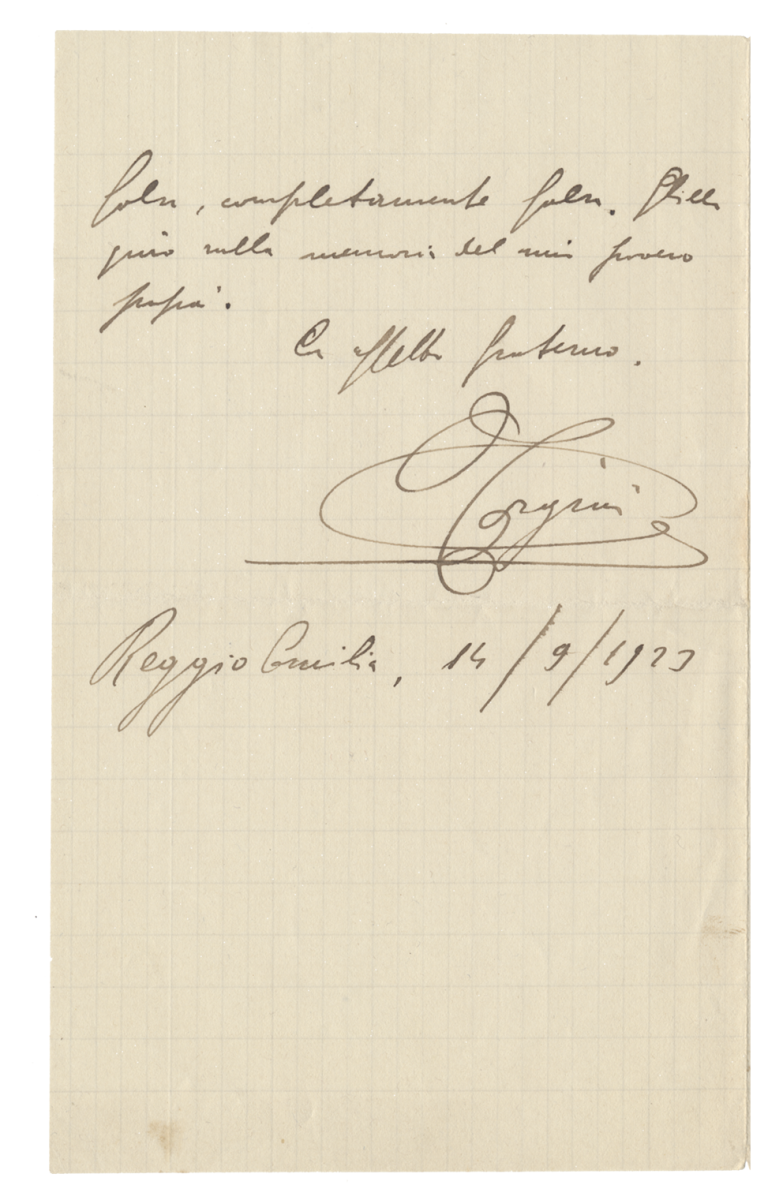 falso, completamente falso. Gliela
giuro sulla memoria del mio povero
papà.
Con affetto fraterno.
Corgini
Reggio Emilia, 14/9/1923